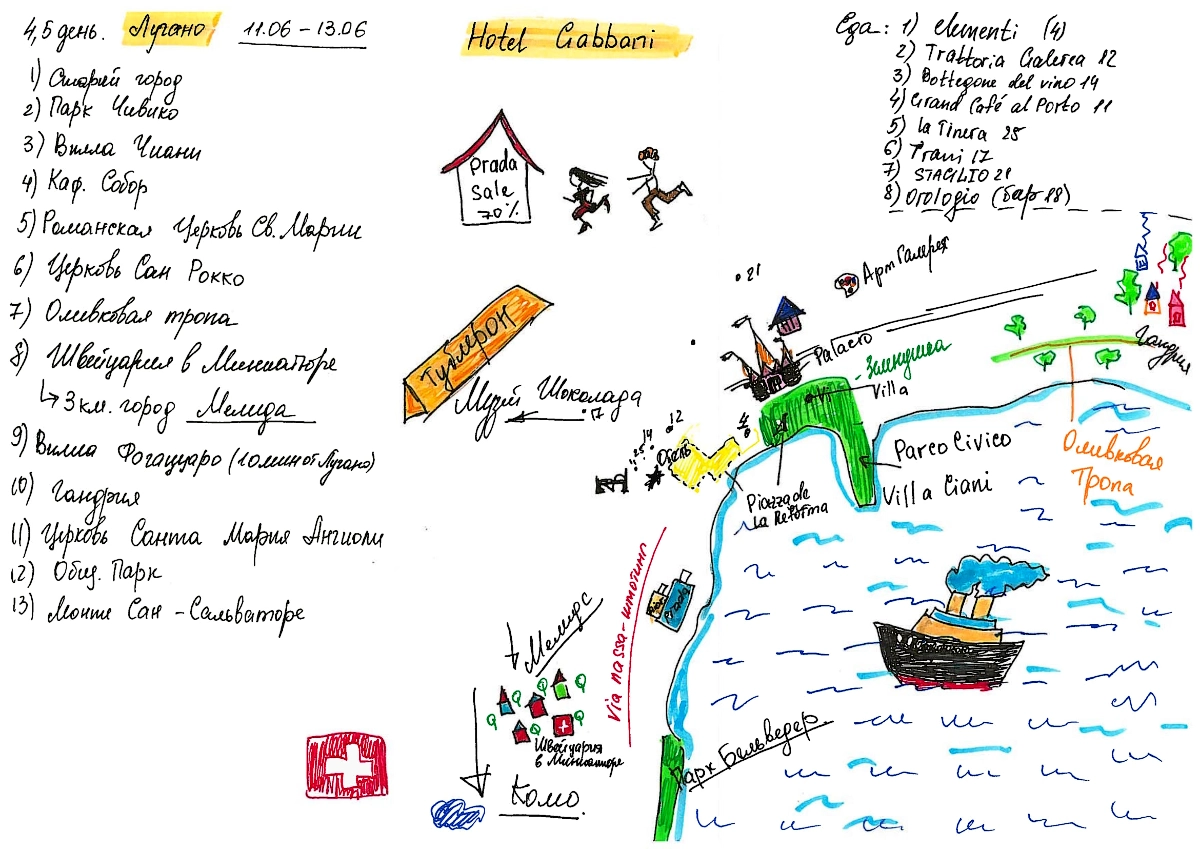 4,5 день. Лугано 11.06 – 13.06
1) Старый город
2) Парк Чивико
3) Вилла Чиани
4) Каф. Собор
5) Романская Церковь Св. Марии
6) Церковь Сан Рокко
7) Оливковая тропа
8) Швейцария в Миниатюре
↳ 3 км. город Мелида
9) Вилла Фогаццаро (10 мин от Лугано)
10) Гандрия
11) Церковь Санта Мария Ангиоли
12) Общ. Парк
13) Монте Сан - Сальваторе
Hotel Gabbani
Prada
Sale
70%
Еда: 1) Elementi (4)
2) Trattoria Galerea 12
3) Bottegone del vino 14
4) Grand Café al Porto 11
5) La Tinera 25
6) Trani 17
7) STAGILIO 21
8) Orologio (бар 18)
21
Арт Галерея
Palacio
Гандрия
Тублерон
Музей Шоколада
17
12
14
25
4
Villa
Parco Civico
Villa Ciani
Оливковая
Тропа
Piazza de
La Reforma
Via nassa - шопинг
Prada
Мелидс
Швейцария
в Миниатюре
Комо
Парк Бельведер